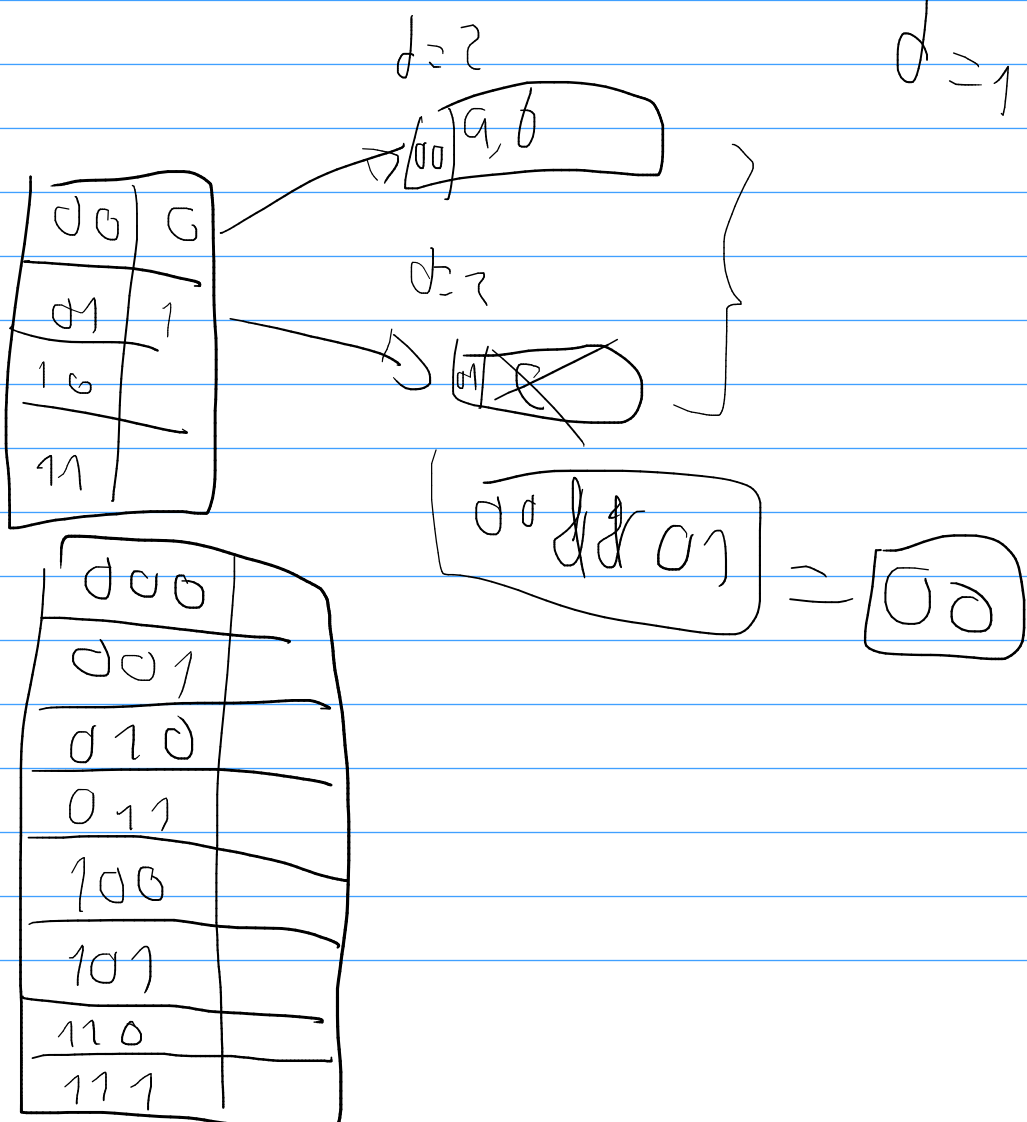 d=2
d=1
00 a,b
00 0
d=2
01 1
01
10
11
00 && 01 = 00
000
001
010
011
100
101
110
111